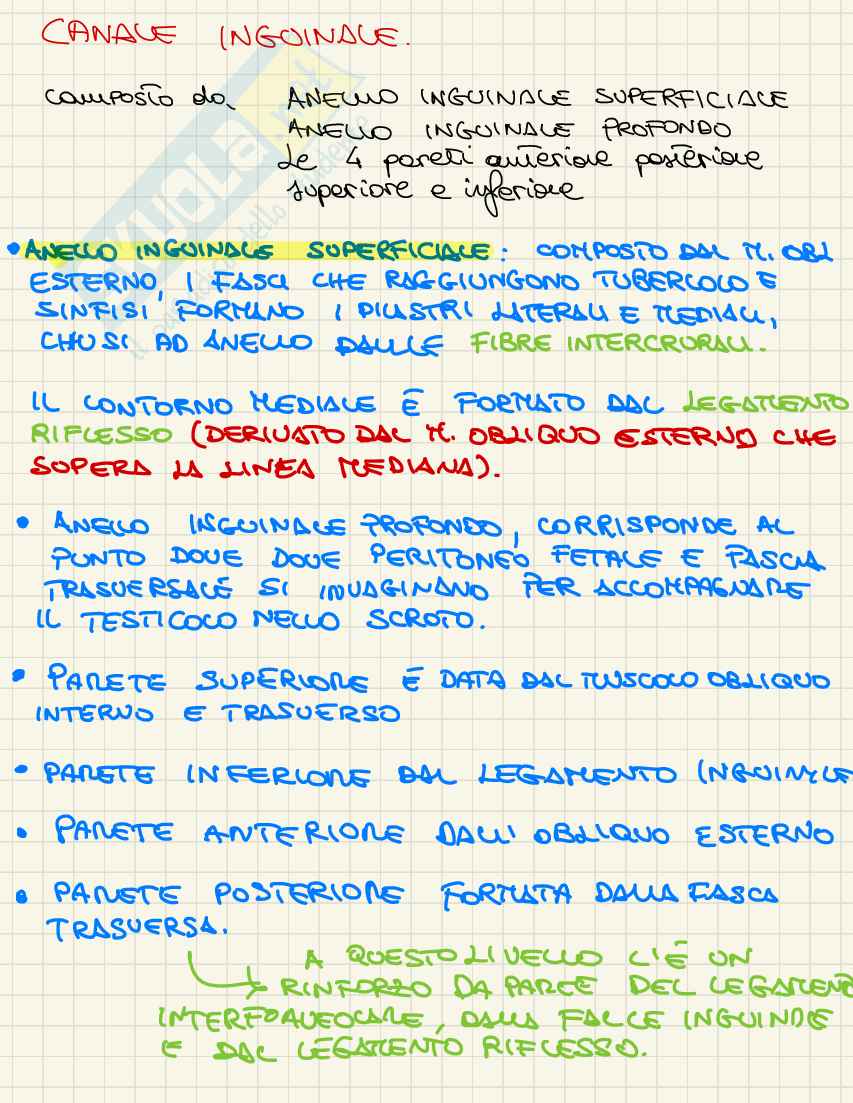 CANALE INGUINALE.
composto da ANELLO INGUINALE SUPERFICIALE
ANELLO INGUINALE PROFONDO
Le 4 pareti anteriore posteriore
superiore e inferiore
• ANELLO INGUINALE SUPERFICIALE: COMPOSTO DAL M. OBL
ESTERNO, I FASCI CHE RAGGIUNGONO TUBERCOLO E
SINFISI FORMANO I PILASTRI LATERALI E MEDIALI,
CHIUSI AD ANELLO DALLE FIBRE INTERCRURALI.
IL CONTORNO MEDIALE È FORMATO DAL LEGAMENTO
RIFLESSO (DERIVATO DAL M. OBLIQUO ESTERNO CHE
SUPERA LA LINEA MEDIANA).
• ANELLO INGUINALE PROFONDO, CORRISPONDE AL
PUNTO DOVE DOVE PERITONEO FETALE E FASCIA
TRASVERSALE SI INVAGINANO PER ACCOMPAGNARE
IL TESTICOLO NELLO SCROTO.
• PARETE SUPERIORE È DATA DAL MUSCOLO OBLIQUO
INTERNO E TRASVERSO
• PARETE INFERIORE DAL LEGAMENTO INGUINALE
• PARETE ANTERIORE DALL'OBLIQUO ESTERNO
• PARETE POSTERIORE FORMATA DALLA FASCA
TRASVERSA.
A QUESTO LIVELLO C'È UN
RINFORZO DA PARTE DEL LEGAMENTO
INTERFOAVEOLARE, DALLA FALCE INGUINALE
E DAL LEGAMENTO RIFLESSO.